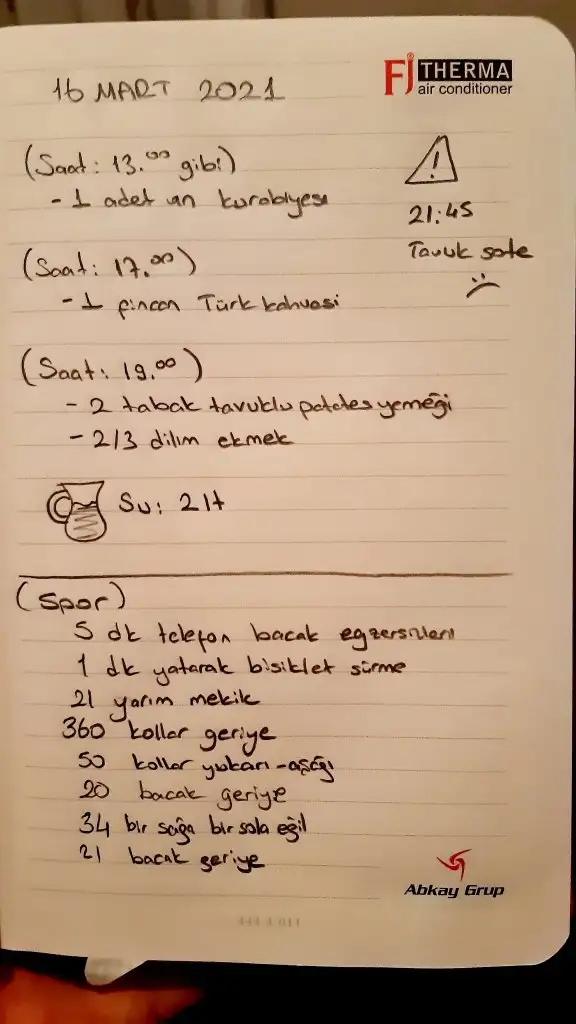 16 MART 2021
FJ THERMA
air conditioner
(Saat: 13.00 gibi)
- 1 adet un kurabiyesi
21:45
Tavuk sote
(Saat: 17.00)
- 1 fincan Türk kahvesi
(Saat: 19.00)
- 2 tabak tavuklu patates yemeği
- 2/3 dilim ekmek
Su: 2 lt
(Spor)
5 dk telefon bacak egzersizleri
1 dk yatarak bisiklet sürme
21 yarım mekik
360 kollar geriye
50 kollar yukarı-aşağı
20 bacak geriye
34 bir sağa bir sola eğil
21 bacak geriye
Abkay Grup